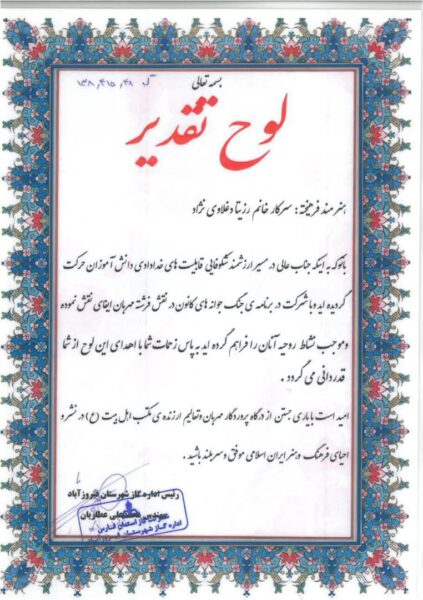 بسمه تعالی
لوح تقدیر
هنرمند فرهیخته: سرکار خانم رزیتا دغلاوی نژاد
باتوجه به اینکه جناب عالی در مسیر ارزشمند شکوفایی قابلیت های خدادادی دانش آموزان حرکت
گردیده اید و با شرکت در برنامه ی جنگ جوانه های کانون در نقش فرشته مهربان ایفای نقش نموده
و موجب نشاط روحیه آنان را فراهم کرده اید به پاس زحمات شما با اهدای این لوح از شما
قدردانی می گردد.
امید است با یاری جستن از درگاه پروردگار مهربان و تعالیم ارزنده ی مکتب اهل بیت (ع) در نشر و
احیای فرهنگ و هنر ایران اسلامی موفق و سربلند باشید.
رئیس اداره گاز شهرستان فیروزآباد
عطاریان
شرکت گاز استان فارس
اداره گاز شهرستان